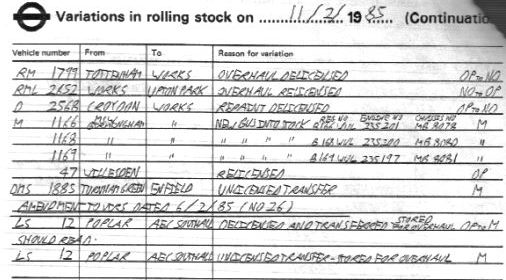 Variations in rolling stock on 11/2/ 19 85 (Continuatio
Vehicle number From To Reason for variation
RM 1799 TOTTENHAM WORKS OVERHAUL DELICENSED OP TO NO
RML 2652 WORKS UPTON PARK OVERHAUL RELICENSED NO TO OP
D 2568 CROYDON WORKS REPAINT DELICENSED OP TO NO
REG NO ENGINE NO CHASSIS NO
M 1166 " " NEW BUS INTO STOCK WUL 235201 MB 8078 M
1168 " " " " " " B168 WUL 235200 MB 8080 "
1169 " " " " " " B169 WUL 235197 MB 8081 "
47 WILLESDEN RELICENSED OP
DMS 1885 TURNHAM GREEN ENFIELD UNLICENSED TRANSFER M
AMENDMENT TO VORS DATED 6/2/85 (NO 26)
LS 12 POPLAR AEC SOUTHALL DELICENSED AND TRANSFERRED STORED FOR OVERHAUL OP TO M
SHOULD READ:
LS 12 POPLAR AEC SOUTHALL UNLICENSED TRANSFER - STORED FOR OVERHAUL M